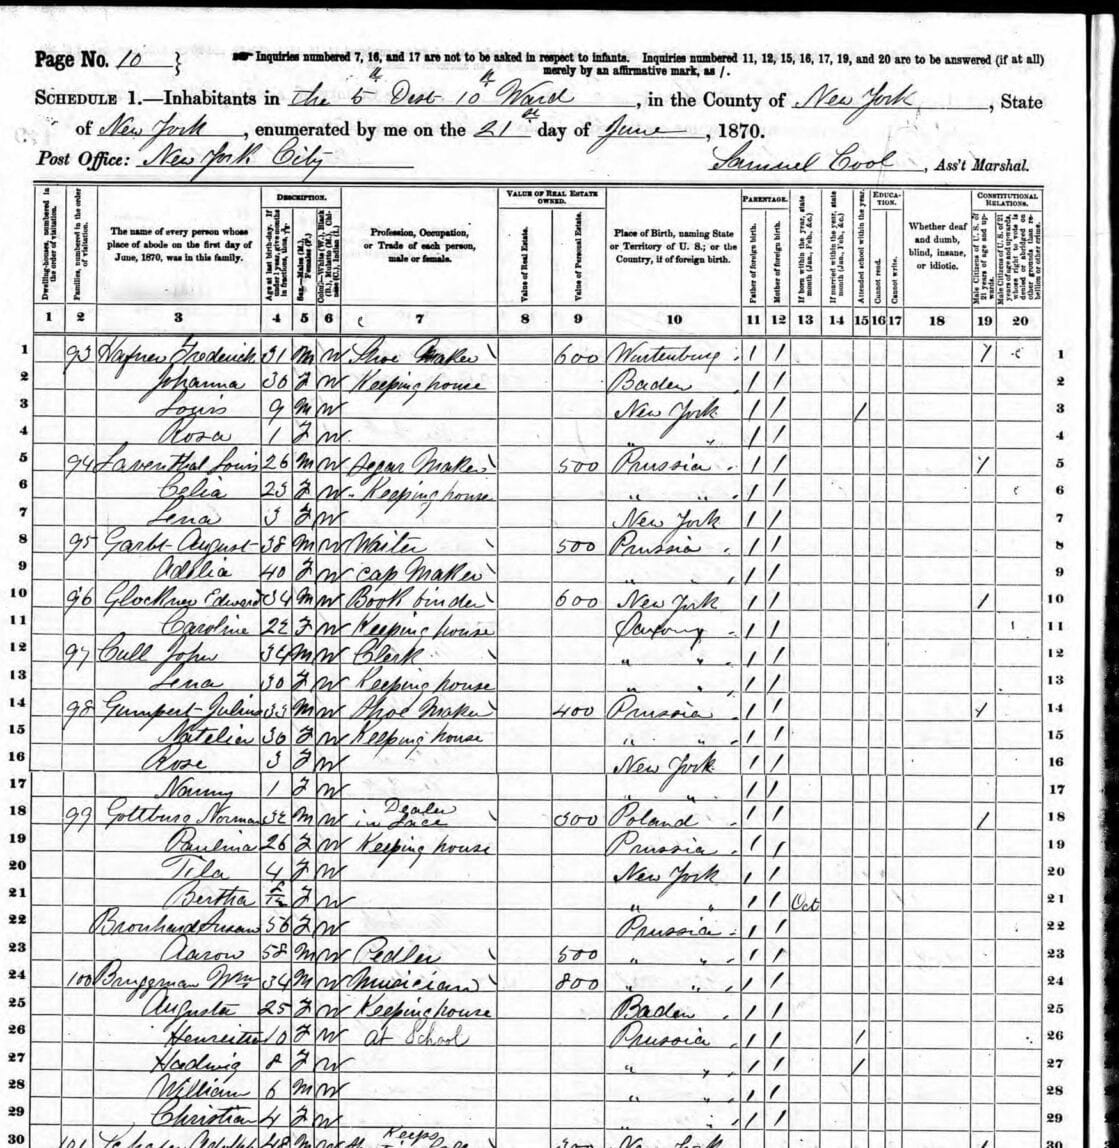 Page No. 10 } Inquiries numbered 7, 16, and 17 are not to be asked in respect to infants. Inquiries numbered 11, 12, 15, 16, 17, 19, and 20 are to be answered (if at all)
merely by an affirmative mark, as /.
SCHEDULE 1.—Inhabitants in the 5th Dist 10th Ward, in the County of New York, State
of New York, enumerated by me on the 21st day of June, 1870.
Post Office: New York City Samuel Cool, Ass't Marshal.
Dwelling-houses, numbered in the order of visitation.
Families, numbered in the order of visitation.
The name of every person whose place of abode on the first day of June, 1870, was in this family.
DESCRIPTION.
Age at last birth-day. If under 1 year, give months in fractions, thus, 3/12
Sex.—Males (M.), Females (F.)
Color.—White (W.), Black (B.), Mulatto (M.), Chinese (C.), Indian (I.)
Profession, Occupation, or Trade of each person, male or female.
VALUE OF REAL ESTATE OWNED.
Value of Real Estate.
Value of Personal Estate.
Place of Birth, naming State or Territory of U. S.; or the Country, if of foreign birth.
PARENTAGE.
Father of foreign birth.
Mother of foreign birth.
If born within the year, state month (Jan., Feb., &c.)
If married within the year, state month (Jan., Feb., &c.)
Attended school within the year.
EDUCATION.
Cannot read.
Cannot write.
Whether deaf and dumb, blind, insane, or idiotic.
CONSTITUTIONAL RELATIONS.
Male Citizens of U. S. of 21 years of age and upwards.
Male Citizens of U. S. of 21 years of age and upwards, whose right to vote is denied or abridged on other grounds than rebellion or other crime.
1 2 3 4 5 6 7 8 9 10 11 12 13 14 15 16 17 18 19 20
1 93 Frederick 31 M W Shoe Maker 600 Wurtenburg / / / 1
2 Johanna 30 F W Keeping house Baden / / 2
3 Louis 9 M W New York / / / 3
4 Rosa 1 F W " " / / 4
5 94 Laventhal Louis 26 M W Segar Maker 500 Prussia / / / 5
6 Celia 23 F W Keeping house " " / / 6
7 Lena 3 F W New York / / 7
8 95 Garbt August 38 M W Waiter 500 Prussia / / 8
9 Adelia 40 F W Cap Maker " " / / 9
10 96 Glockner Edward 34 M W Book binder 600 New York / / / 10
11 Caroline 22 F W Keeping house Saxony / / 11
12 97 Cull John 34 M W Clerk " " / / 12
13 Lena 30 F W Keeping house " " / / 13
14 98 Gumpert Julius 33 M W Shoe Maker 400 Prussia / / / 14
15 Natelia 30 F W Keeping house " " / / 15
16 Rose 3 F W New York / / 16
17 Nanny 1 F W " " / / 17
18 99 Gottburg Norman 32 M W Dealer in Lace 300 Poland / / / 18
19 Paulina 26 F W Keeping house Prussia / / 19
20 Tila 4 F W New York / / 20
21 Bertha F W " " / / Oct 21
22 Susan 56 F W Prussia / / 22
23 Aaron 58 M W Pedler 500 " " / / 23
24 100 Bruggman Wm 34 M W Musician 800 " " / / 24
25 Augusta 25 F W Keeping house Baden / / 25
26 10 F W at School Prussia / / / 26
27 Hedwig 8 F W " " / / / 27
28 William 6 M W " " / / 28
29 Christian 4 F W " " / / 29
30 101 48 M W Keeps New York 30